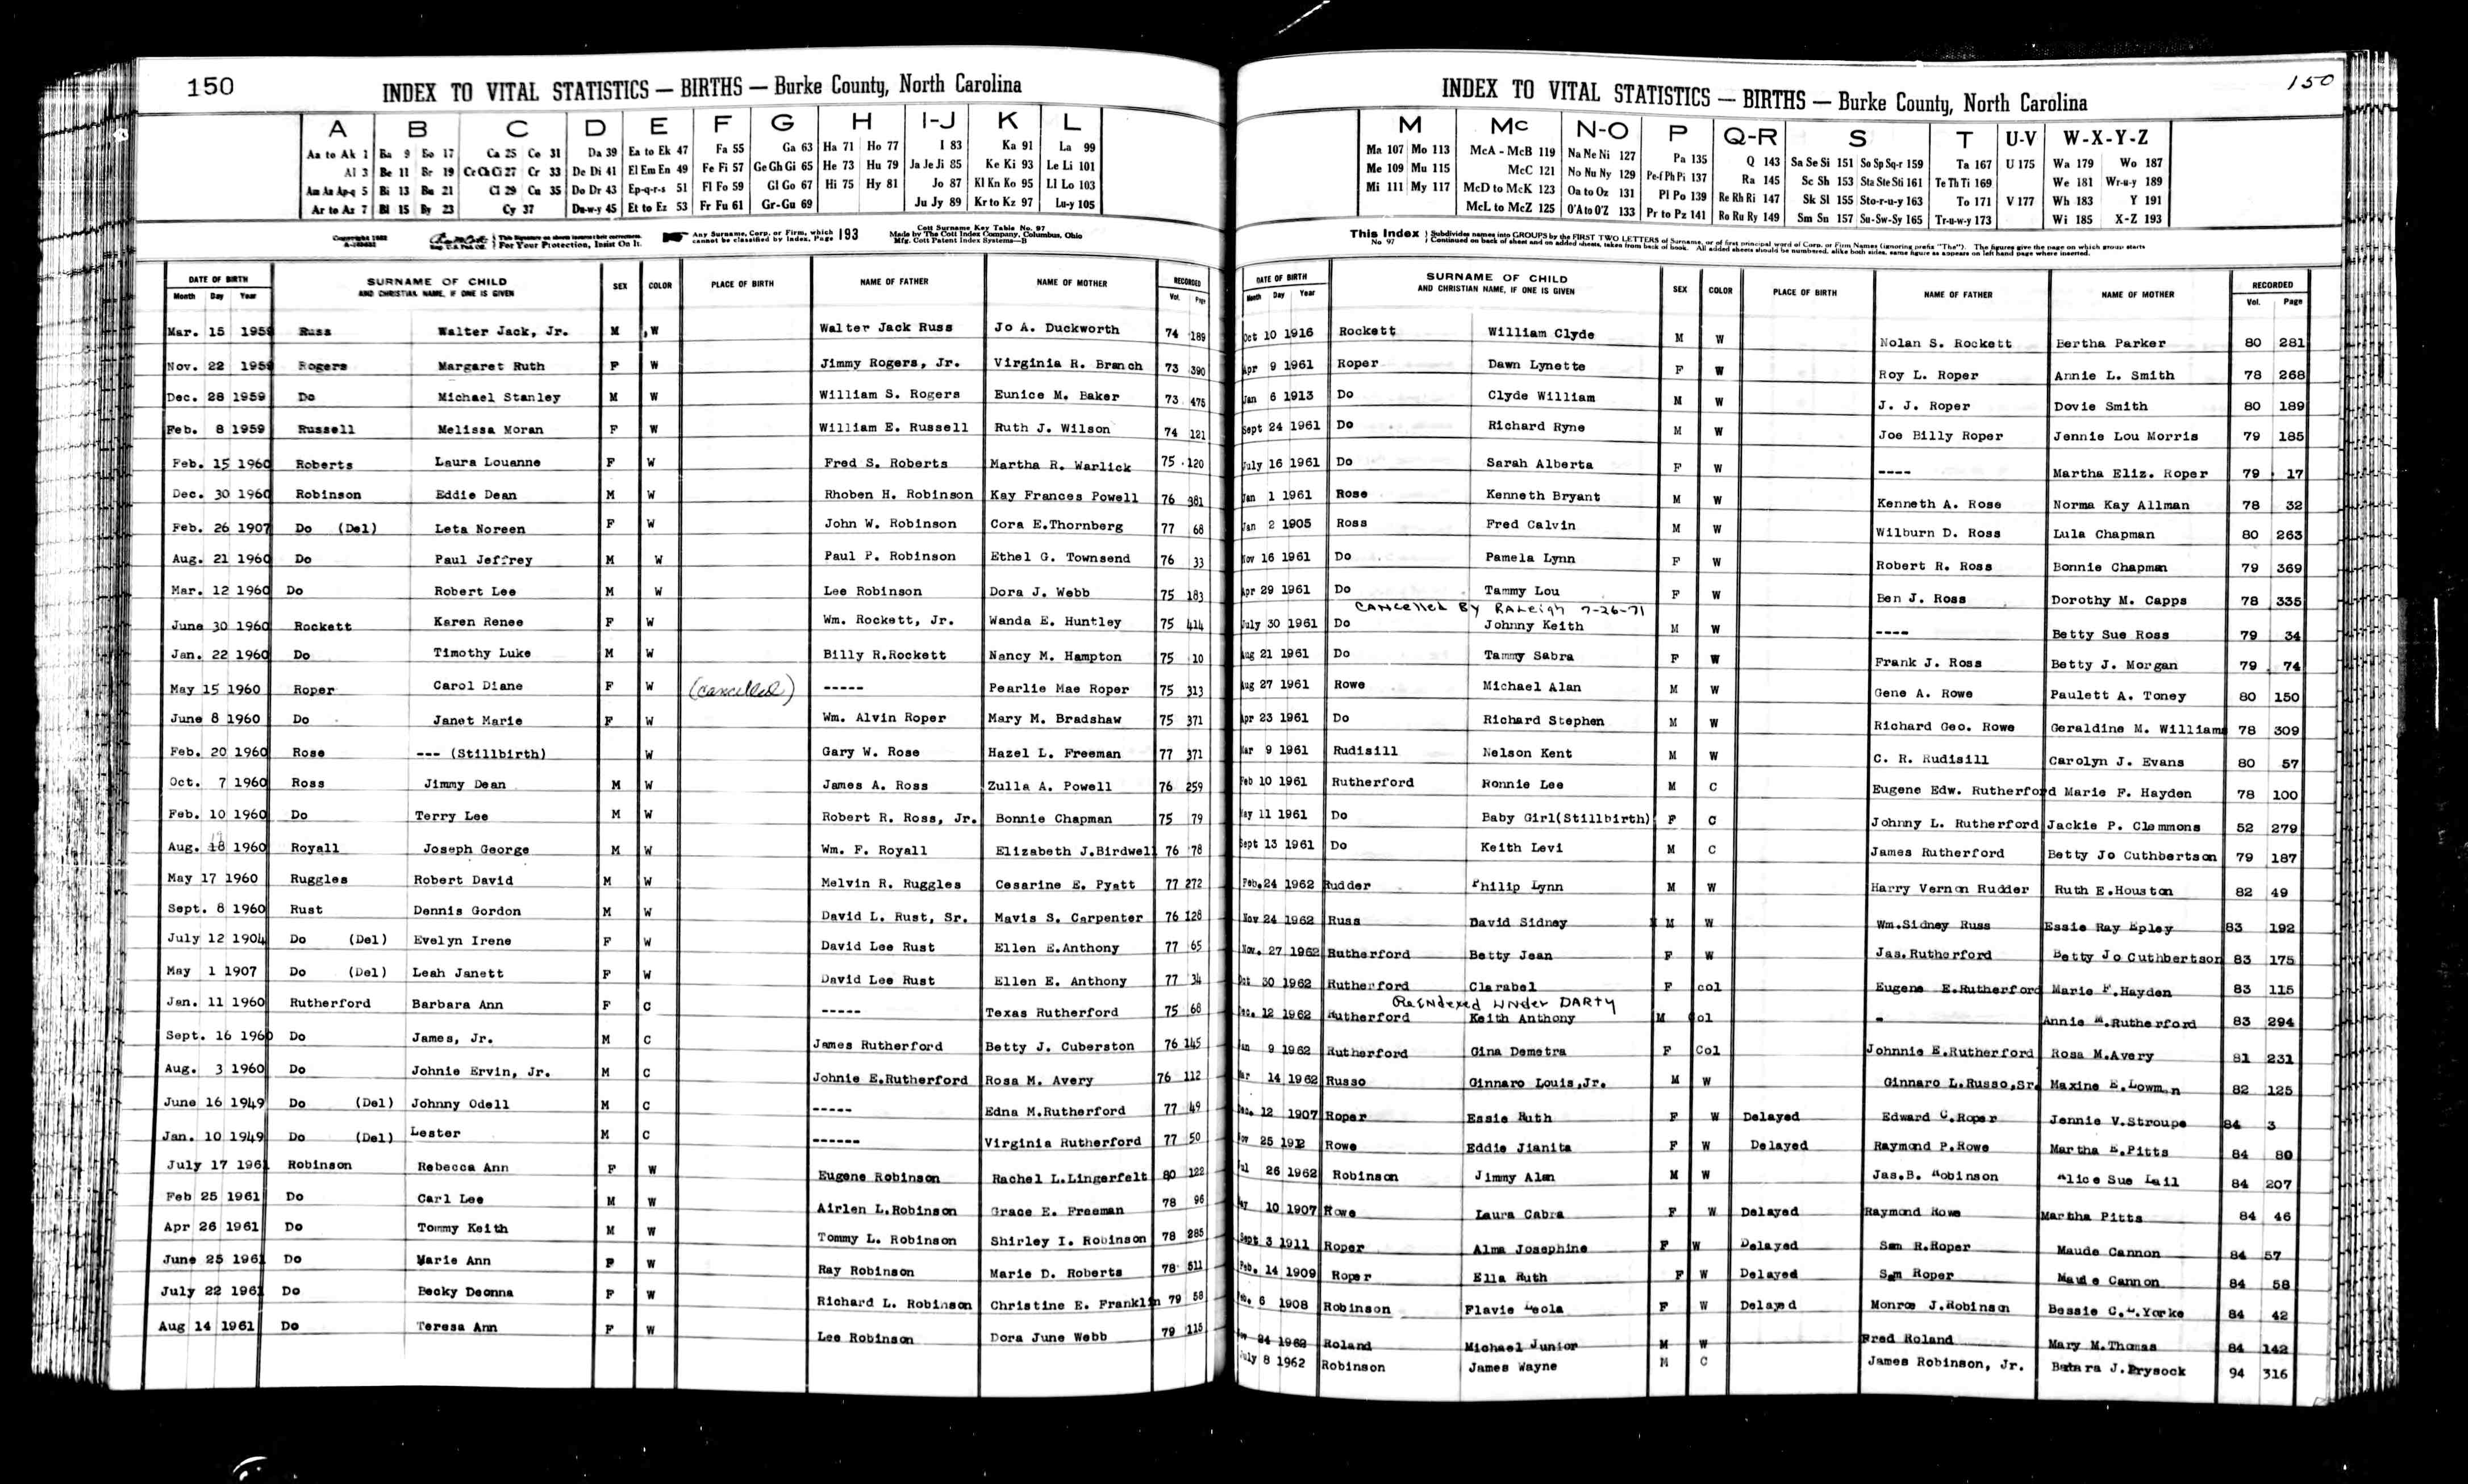 150
INDEX TO VITAL STATISTICS — BIRTHS — Burke County, North Carolina
A B C D E F G H I-J K L
Aa to Ak 1 Ba 9 Bo 17 Ca 25 Co 31 Da 39 Ea to Ek 47 Fa 55 Ga 63 Ha 71 Ho 77 I 83 Ka 91 La 99
Al 3 Be 11 Br 19 Ce Ch Ci 27 Cr 33 De Di 41 El Em En 49 Fe Fi 57 Ge Gh Gi 65 He 73 Hu 79 Ja Je Ji 85 Ke Ki 93 Le Li 101
Am An Ap-q 5 Bi 13 Bu 21 Cl 29 Cu 35 Do Dr 43 Ep-q-r-s 51 Fl Fo 59 Gl Go 67 Hi 75 Hy 81 Jo 87 Kl Kn Ko 95 Ll Lo 103
Ar to Az 7 Bl 15 By 23 Cy 37 Du-w-y 45 Et to Ez 53 Fr Fu 61 Gr-Gu 69 Ju Jy 89 Kr to Kz 97 Lu-y 105
For Your Protection, Insist On It.
Any Surname, Corp. or Firm, which cannot be classified by Index, Page 193
Cott Surname Key Table No. 97
Made by The Cott Index Company, Columbus, Ohio
Mfg. Cott Patent Index Systems—B
DATE OF BIRTH SURNAME OF CHILD SEX COLOR PLACE OF BIRTH NAME OF FATHER NAME OF MOTHER RECORDED
Month Day Year AND CHRISTIAN NAME, IF ONE IS GIVEN Vol. Page
Mar. 15 1959 Russ Walter Jack, Jr. M W Walter Jack Russ Jo A. Duckworth 74 189
Nov. 22 1959 Rogers Margaret Ruth F W Jimmy Rogers, Jr. Virginia R. Branch 73 390
Dec. 28 1959 Do Michael Stanley M W William S. Rogers Eunice M. Baker 73 475
Feb. 8 1959 Russell Melissa Moran F W William E. Russell Ruth J. Wilson 74 121
Feb. 15 1960 Roberts Laura Louanne F W Fred S. Roberts Martha R. Warlick 75 120
Dec. 30 1960 Robinson Eddie Dean M W Rhoben H. Robinson Kay Frances Powell 76 381
Feb. 26 1907 Do (Del) Leta Noreen F W John W. Robinson Cora E.Thornberg 77 68
Aug. 21 1960 Do Paul Jeffrey M W Paul P. Robinson Ethel G. Townsend 76 33
Mar. 12 1960 Do Robert Lee M W Lee Robinson Dora J. Webb 75 183
June 30 1960 Rockett Karen Renee F W Wm. Rockett, Jr. Wanda E. Huntley 75 414
Jan. 22 1960 Do Timothy Luke M W Billy R.Rockett Nancy M. Hampton 75 10
May 15 1960 Roper Carol Diane F W (cancelled) ----- Pearlie Mae Roper 75 313
June 8 1960 Do Janet Marie F W Wm. Alvin Roper Mary M. Bradshaw 75 371
Feb. 20 1960 Rose --- (Stillbirth) W Gary W. Rose Hazel L. Freeman 77 371
Oct. 7 1960 Ross Jimmy Dean M W James A. Ross Zulla A. Powell 76 259
Feb. 10 1960 Do Terry Lee M W Robert R. Ross, Jr. Bonnie Chapman 75 79
Aug. 18 1960 Royall Joseph George M W Wm. F. Royall Elizabeth J.Birdwell 76 78
May 17 1960 Ruggles Robert David M W Melvin R. Ruggles Cesarine E. Pyatt 77 272
Sept. 8 1960 Rust Dennis Gordon M W David L. Rust, Sr. Mavis S. Carpenter 76 128
July 12 1904 Do (Del) Evelyn Irene F W David Lee Rust Ellen E.Anthony 77 65
May 1 1907 Do (Del) Leah Janett F W David Lee Rust Ellen E. Anthony 77 34
Jan. 11 1960 Rutherford Barbara Ann F C ----- Texas Rutherford 75 68
Sept. 16 1960 Do James, Jr. M C James Rutherford Betty J. Cuberston 76 145
Aug. 3 1960 Do Johnie Ervin, Jr. M C Johnie E.Rutherford Rosa M. Avery 76 112
June 16 1949 Do (Del) Johnny Odell M C ----- Edna M.Rutherford 77 49
Jan. 10 1949 Do (Del) Lester M C ------ Virginia Rutherford 77 50
July 17 1961 Robinson Rebecca Ann F W Eugene Robinson Rachel L.Lingerfelt 80 122
Feb 25 1961 Do Carl Lee M W Airlen L.Robinson Grace E. Freeman 78 96
Apr 26 1961 Do Tommy Keith M W Tommy L. Robinson Shirley I. Robinson 78 285
June 25 1961 Do Marie Ann F W Ray Robinson Marie D. Roberts 78 511
July 22 1961 Do Becky Deonna F W Richard L. Robinson Christine E. Franklin 79 58
Aug 14 1961 Do Teresa Ann F W Lee Robinson Dora June Webb 79 115
150
INDEX TO VITAL STATISTICS — BIRTHS — Burke County, North Carolina
M Mc N-O P Q-R S T U-V W-X-Y-Z
Ma 107 Mo 113 McA - McB 119 Na Ne Ni 127 Pa 135 Q 143 Sa Se Si 151 So Sp Sq-r 159 Ta 167 U 175 Wa 179 Wo 187
Me 109 Mu 115 McC 121 No Nu Ny 129 Pe-f Ph Pi 137 Ra 145 Sc Sh 153 Sta Ste Sti 161 Te Th Ti 169 We 181 Wr-u-y 189
Mi 111 My 117 McD to McK 123 Oa to Oz 131 Pl Po 139 Re Rh Ri 147 Sk Sl 155 Sto-r-u-y 163 To 171 V 177 Wh 183 Y 191
McL to McZ 125 O'A to O'Z 133 Pr to Pz 141 Ro Ru Ry 149 Sm Sn 157 Su-Sw-Sy 165 Tr-u-w-y 173 Wi 185 X-Z 193
This Index Subdivides names into GROUPS by the FIRST TWO LETTERS of Surname, or of first principal word of Corp. or Firm Names (ignoring prefix "The"). The figures give the page on which group starts
No 97 Continued on back of sheet and on added sheets, taken from back of book. All added sheets should be numbered, alike both sides, same figure as appears on left hand page where inserted.
DATE OF BIRTH SURNAME OF CHILD SEX COLOR PLACE OF BIRTH NAME OF FATHER NAME OF MOTHER RECORDED
Month Day Year AND CHRISTIAN NAME, IF ONE IS GIVEN Vol. Page
Oct 10 1916 Rockett William Clyde M W Nolan S. Rockett Bertha Parker 80 281
Apr 9 1961 Roper Dawn Lynette F W Roy L. Roper Annie L. Smith 78 268
Jan 6 1913 Do Clyde William M W J. J. Roper Dovie Smith 80 189
Sept 24 1961 Do Richard Ryne M W Joe Billy Roper Jennie Lou Morris 79 185
July 16 1961 Do Sarah Alberta F W ---- Martha Eliz. Roper 79 17
Jan 1 1961 Rose Kenneth Bryant M W Kenneth A. Rose Norma Kay Allman 78 32
Jan 2 1905 Ross Fred Calvin M W Wilburn D. Ross Lula Chapman 80 263
Nov 16 1961 Do Pamela Lynn F W Robert R. Ross Bonnie Chapman 79 369
Apr 29 1961 Do Tammy Lou F W Ben J. Ross Dorothy M. Capps 78 335
Cancelled By Raleigh 7-26-71
July 30 1961 Do Johnny Keith M W ---- Betty Sue Ross 79 34
Aug 21 1961 Do Tammy Sabra F W Frank J. Ross Betty J. Morgan 79 74
Aug 27 1961 Rowe Michael Alan M W Gene A. Rowe Paulett A. Toney 80 150
Apr 23 1961 Do Richard Stephen M W Richard Geo. Rowe Geraldine M. Williams 78 309
Mar 9 1961 Rudisill Nelson Kent M W C. R. Rudisill Carolyn J. Evans 80 57
Feb 10 1961 Rutherford Ronnie Lee M C Eugene Edw. Rutherford Marie F. Hayden 78 100
May 11 1961 Do Baby Girl(Stillbirth) F C Johnny L. Rutherford Jackie P. Clemmons 52 279
Sept 13 1961 Do Keith Levi M C James Rutherford Betty Jo Cuthbertson 79 187
Feb.24 1962 Rudder Philip Lynn M W Harry Vernon Rudder Ruth E.Houston 82 49
Nov 24 1962 Russ David Sidney M W Wm.Sidney Russ Essie Ray Epley 83 192
Nov. 27 1962 Rutherford Betty Jean F W Jas.Rutherford Betty Jo Cuthbertson 83 175
Oct 30 1962 Rutherford Clarabel F col Eugene E.Rutherford Marie F.Hayden 83 115
Reindexed Under DARTY
Dec. 12 1962 Rutherford Keith Anthony M Col - Annie M.Rutherford 83 294
Jan 9 1962 Rutherford Gina Demetra F Col Johnnie E.Rutherford Rosa M.Avery 81 231
Mar 14 1962 Russo Ginnaro Louis,Jr. M W Ginnaro L.Russo,Sr. Maxine E.Lowman 82 125
Dec. 12 1907 Roper Essie Ruth F W Delayed Edward C.Roper Jennie V.Stroupe 84 3
Nov 25 1912 Rowe Eddie Jianita F W Delayed Raymond P.Rowe Martha E.Pitts 84 80
Jul 26 1962 Robinson Jimmy Alan M W Jas.B. Robinson Alice Sue Lail 84 207
May 10 1907 Rowe Laura Cabra F W Delayed Raymond Rowe Martha Pitts 84 46
Sept 3 1911 Roper Alma Josephine F W Delayed Sam R.Roper Maude Cannon 84 57
Feb. 14 1909 Roper Ella Ruth F W Delayed Sam Roper Maude Cannon 84 58
6 1908 Robinson Flavie Leola F W Delayed Monroe J.Robinson Bessie C.L.Yorke 84 42
24 1962 Roland Michael Junior M W Fred Roland Mary M.Thomas 84 142
July 8 1962 Robinson James Wayne M C James Robinson, Jr. J.Prysock 94 316